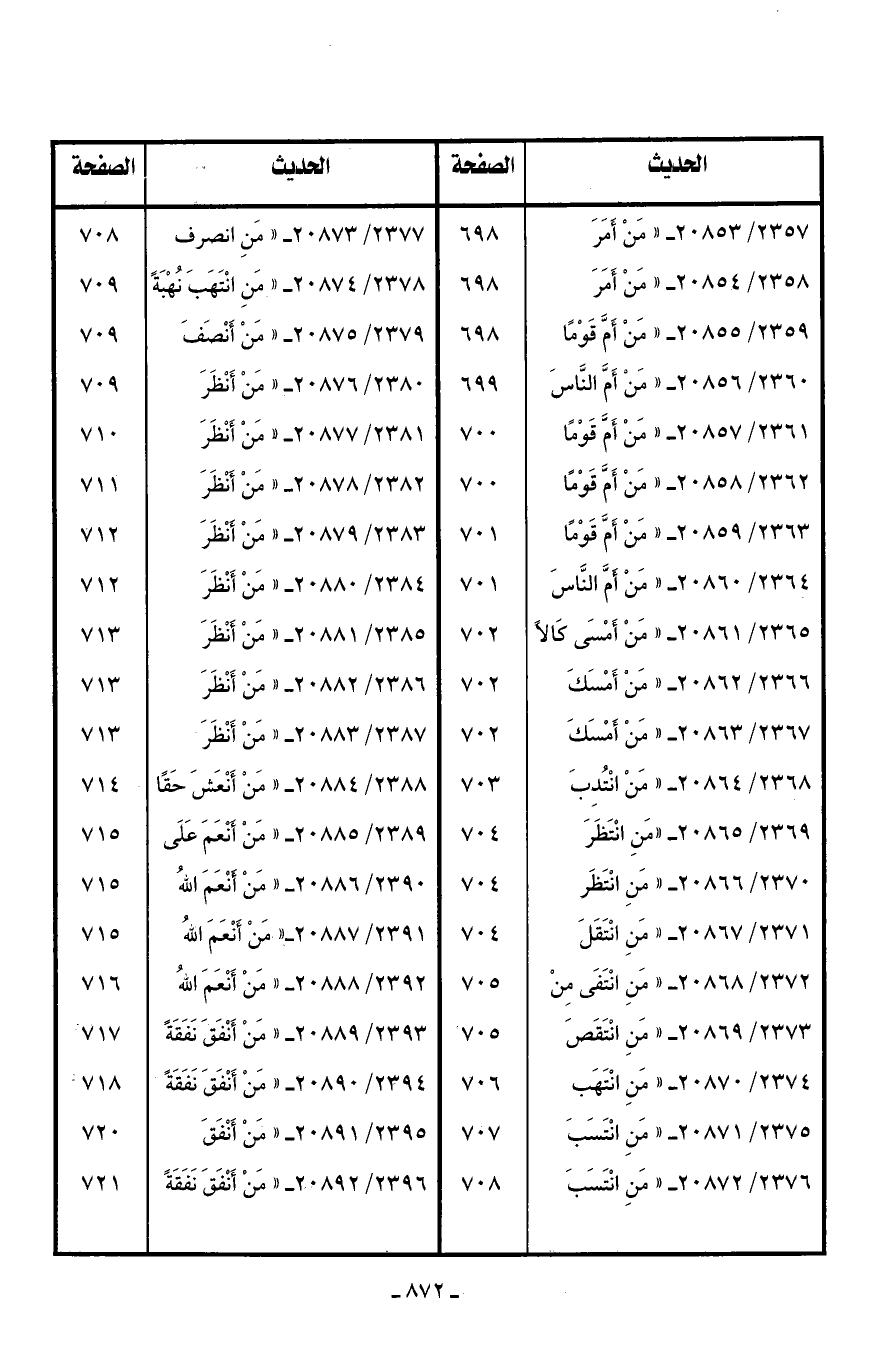 الحديث الصفحة الحديث الصفحة
٢٣٥٧/ ٢٠٨٥٣ـ « مَنْ أَمَرَ ٦٩٨ ٢٣٧٧/ ٢٠٨٧٣ـ « مَنِ انصرف ٧٠٨
٢٣٥٨/ ٢٠٨٥٤ـ « مَنْ أَمَرَ ٦٩٨ ٢٣٧٨/ ٢٠٨٧٤ـ « مَنِ انْتَهَبَ نُهْبَةً ٧٠٩
٢٣٥٩/ ٢٠٨٥٥ـ « مَنْ أَمَّ قَوْمًا ٦٩٨ ٢٣٧٩/ ٢٠٨٧٥ـ « مَنْ أَنْصَفَ ٧٠٩
٢٣٦٠/ ٢٠٨٥٦ـ « مَنْ أَمَّ النَّاسَ ٦٩٩ ٢٣٨٠/ ٢٠٨٧٦ـ « مَنْ أَنْظَرَ ٧٠٩
٢٣٦١/ ٢٠٨٥٧ـ « مَنْ أَمَّ قَوْمًا ٧٠٠ ٢٣٨١/ ٢٠٨٧٧ـ « مَنْ أَنْظَرَ ٧١٠
٢٣٦٢/ ٢٠٨٥٨ـ « مَنْ أَمَّ قَوْمًا ٧٠٠ ٢٣٨٢/ ٢٠٨٧٨ـ « مَنْ أَنْظَرَ ٧١١
٢٣٦٣/ ٢٠٨٥٩ـ « مَنْ أَمَّ قَوْمًا ٧٠١ ٢٣٨٣/ ٢٠٨٧٩ـ « مَنْ أَنْظَرَ ٧١٢
٢٣٦٤/ ٢٠٨٦٠ـ « مَنْ أَمَّ النَّاسَ ٧٠١ ٢٣٨٤/ ٢٠٨٨٠ـ « مَنْ أَنْظَرَ ٧١٢
٢٣٦٥/ ٢٠٨٦١ـ « مَنْ أَمْسَى كَالاً ٧٠٢ ٢٣٨٥/ ٢٠٨٨١ـ « مَنْ أَنْظَرَ ٧١٣
٢٣٦٦/ ٢٠٨٦٢ـ « مَنْ أَمْسَكَ ٧٠٢ ٢٣٨٦/ ٢٠٨٨٢ـ « مَنْ أَنْظَرَ ٧١٣
٢٣٦٧/ ٢٠٨٦٣ـ « مَنْ أَمْسَكَ ٧٠٢ ٢٣٨٧/ ٢٠٨٨٣ـ « مَنْ أَنْظَرَ ٧١٣
٢٣٦٨/ ٢٠٨٦٤ـ « مَنْ انْتُدِبَ ٧٠٣ ٢٣٨٨/ ٢٠٨٨٤ـ « مَنْ أَنْعَشَ حَقًا ٧١٤
٢٣٦٩/ ٢٠٨٦٥ـ «مَنِ انْتَظَرَ ٧٠٤ ٢٣٨٩/ ٢٠٨٨٥ـ « مَنْ أَنْعَمَ عَلَى ٧١٥
٢٣٧٠/ ٢٠٨٦٦ـ « مَنِ انْتَظَر ٧٠٤ ٢٣٩٠/ ٢٠٨٨٦ـ « مَنْ أَنْعَمَ اللهُ ٧١٥
٢٣٧١/ ٢٠٨٦٧ـ « مَنِ انْتَقَلَ ٧٠٤ ٢٣٩١/ ٢٠٨٨٧ـ« مَنْ أَنْعَمَ اللهُ ٧١٥
٢٣٧٢/ ٢٠٨٦٨ـ « مَنِ انْتَفَى مِنْ ٧٠٥ ٢٣٩٢/ ٢٠٨٨٨ـ « مَنْ أَنْعَمَ اللهُ ٧١٦
٢٣٧٣/ ٢٠٨٦٩ـ « مَنِ انْتَقَصَ ٧٠٥ ٢٣٩٣/ ٢٠٨٨٩ـ « مَنْ أَنْفَقَ نَفَقَةً ٧١٧
٢٣٧٤/ ٢٠٨٧٠ـ « مَنِ انْتَهَب ٧٠٦ ٢٣٩٤/ ٢٠٨٩٠ـ « مَنْ أَنْفَقَ نَفَقَةً ٧١٨
٢٣٧٥/ ٢٠٨٧١ـ « مَنِ انْتَسَبَ ٧٠٧ ٢٣٩٥/ ٢٠٨٩١ـ « مَنْ أَنْفَقَ ٧٢٠
٢٣٧٦/ ٢٠٨٧٢ـ « مَنِ انْتَسَبَ ٧٠٨ ٢٣٩٦/ ٢٠٨٩٢ـ « مَنْ أَنْفَقَ نَفَقَةً ٧٢١
ـ ٨٧٢ ـ